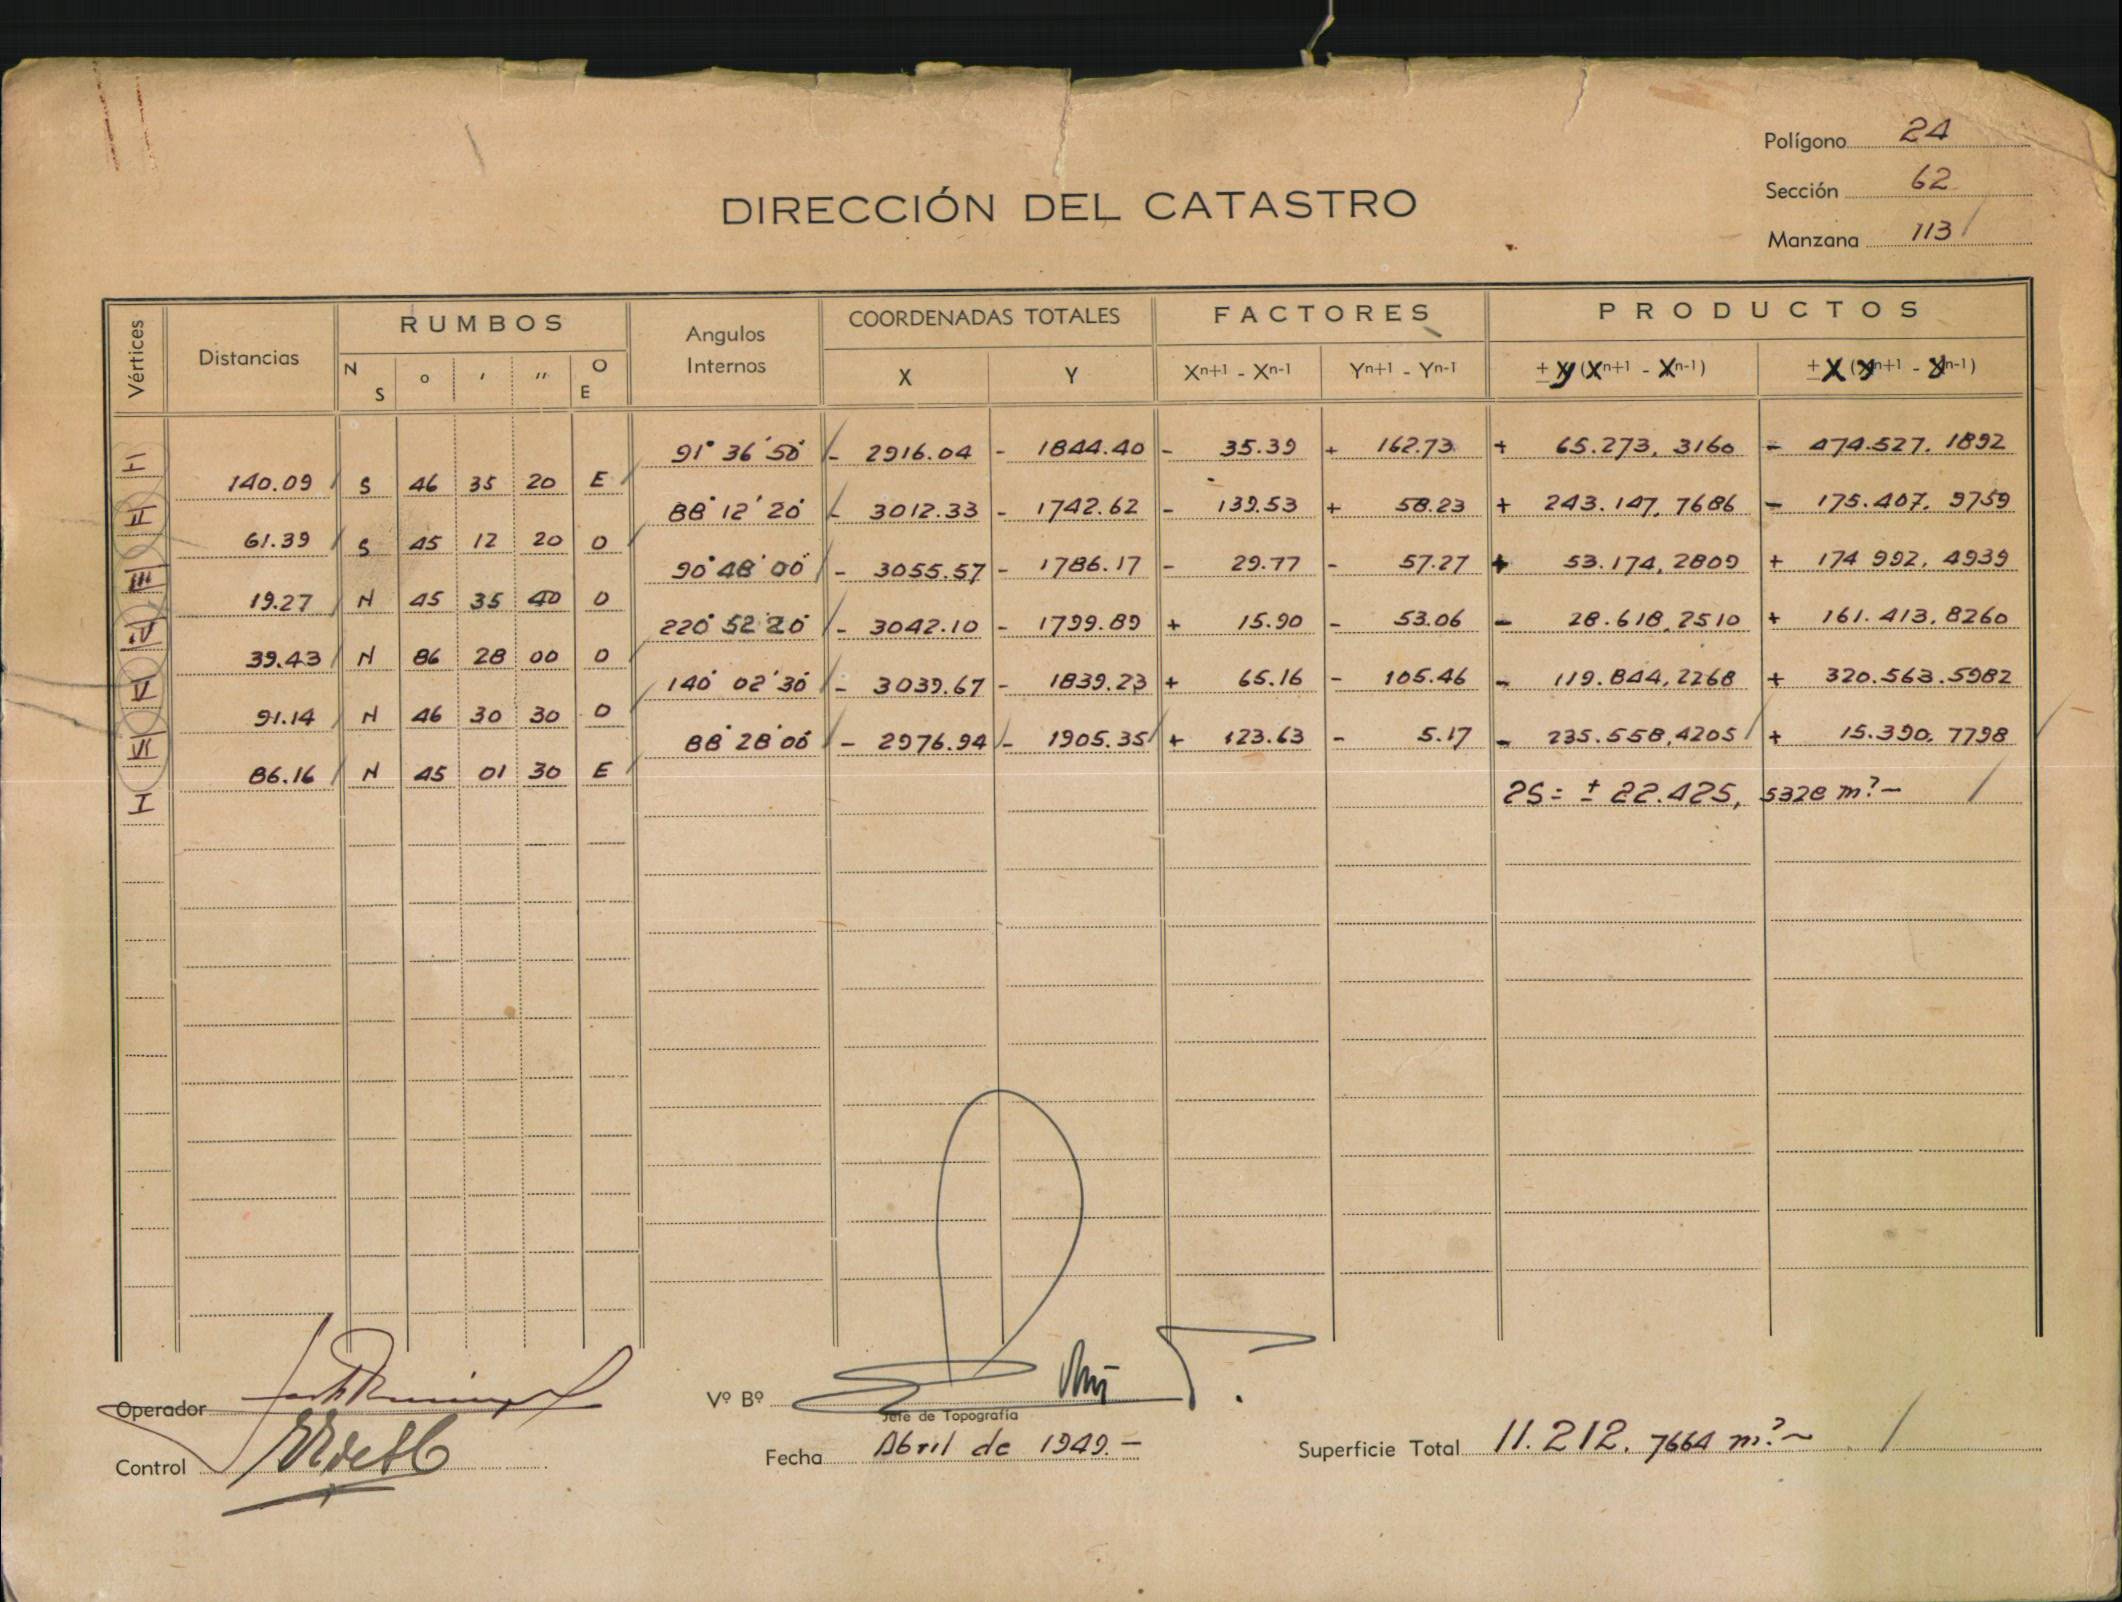 Polígono 24
Sección 62
Manzana 113
DIRECCIÓN DEL CATASTRO
Vértices Distancias RUMBOS Angulos Internos COORDENADAS TOTALES FACTORES PRODUCTOS
N S o ' '' O E X Y Xn+1 - Xn-1 Yn+1 - Yn-1 ± y (Xn+1 - Xn-1) ± X (yn+1 - yn-1)
I 91° 36' 50" - 2916.04 - 1844.40 - 35.39 + 162.73 + 65.273,3160 - 474.527.1892
140.09 S 46 35 20 E
II 88° 12' 20" - 3012.33 - 1742.62 - 139.53 + 58.23 + 243.147,7686 - 175.407,9759
61.39 S 45 12 20 O
III 90° 48' 00" - 3055.57 - 1786.17 - 29.77 - 57.27 + 53.174,2809 + 174 992,4939
19.27 N 45 35 40 O
IV 220° 52' 20" - 3042.10 - 1799.89 + 15.90 - 53.06 - 28.618,2510 + 161.413,8260
39.43 N 86 28 00 O
V 140° 02' 30" - 3039.67 - 1839.23 + 65.16 - 105.46 - 119.844,2268 + 320.563.5982
91.14 N 46 30 30 O
VI 88° 28' 00" - 2976.94 - 1905.35 + 123.63 - 5.17 - 235.558,4205 + 15.390,7798
86.16 N 45 01 30 E
I 2S = ± 22.425,5328 m² -
Operador Vº Bº
Jefe de Topografía
Control Fecha Abril de 1949.- Superficie Total 11.212.7664 m²